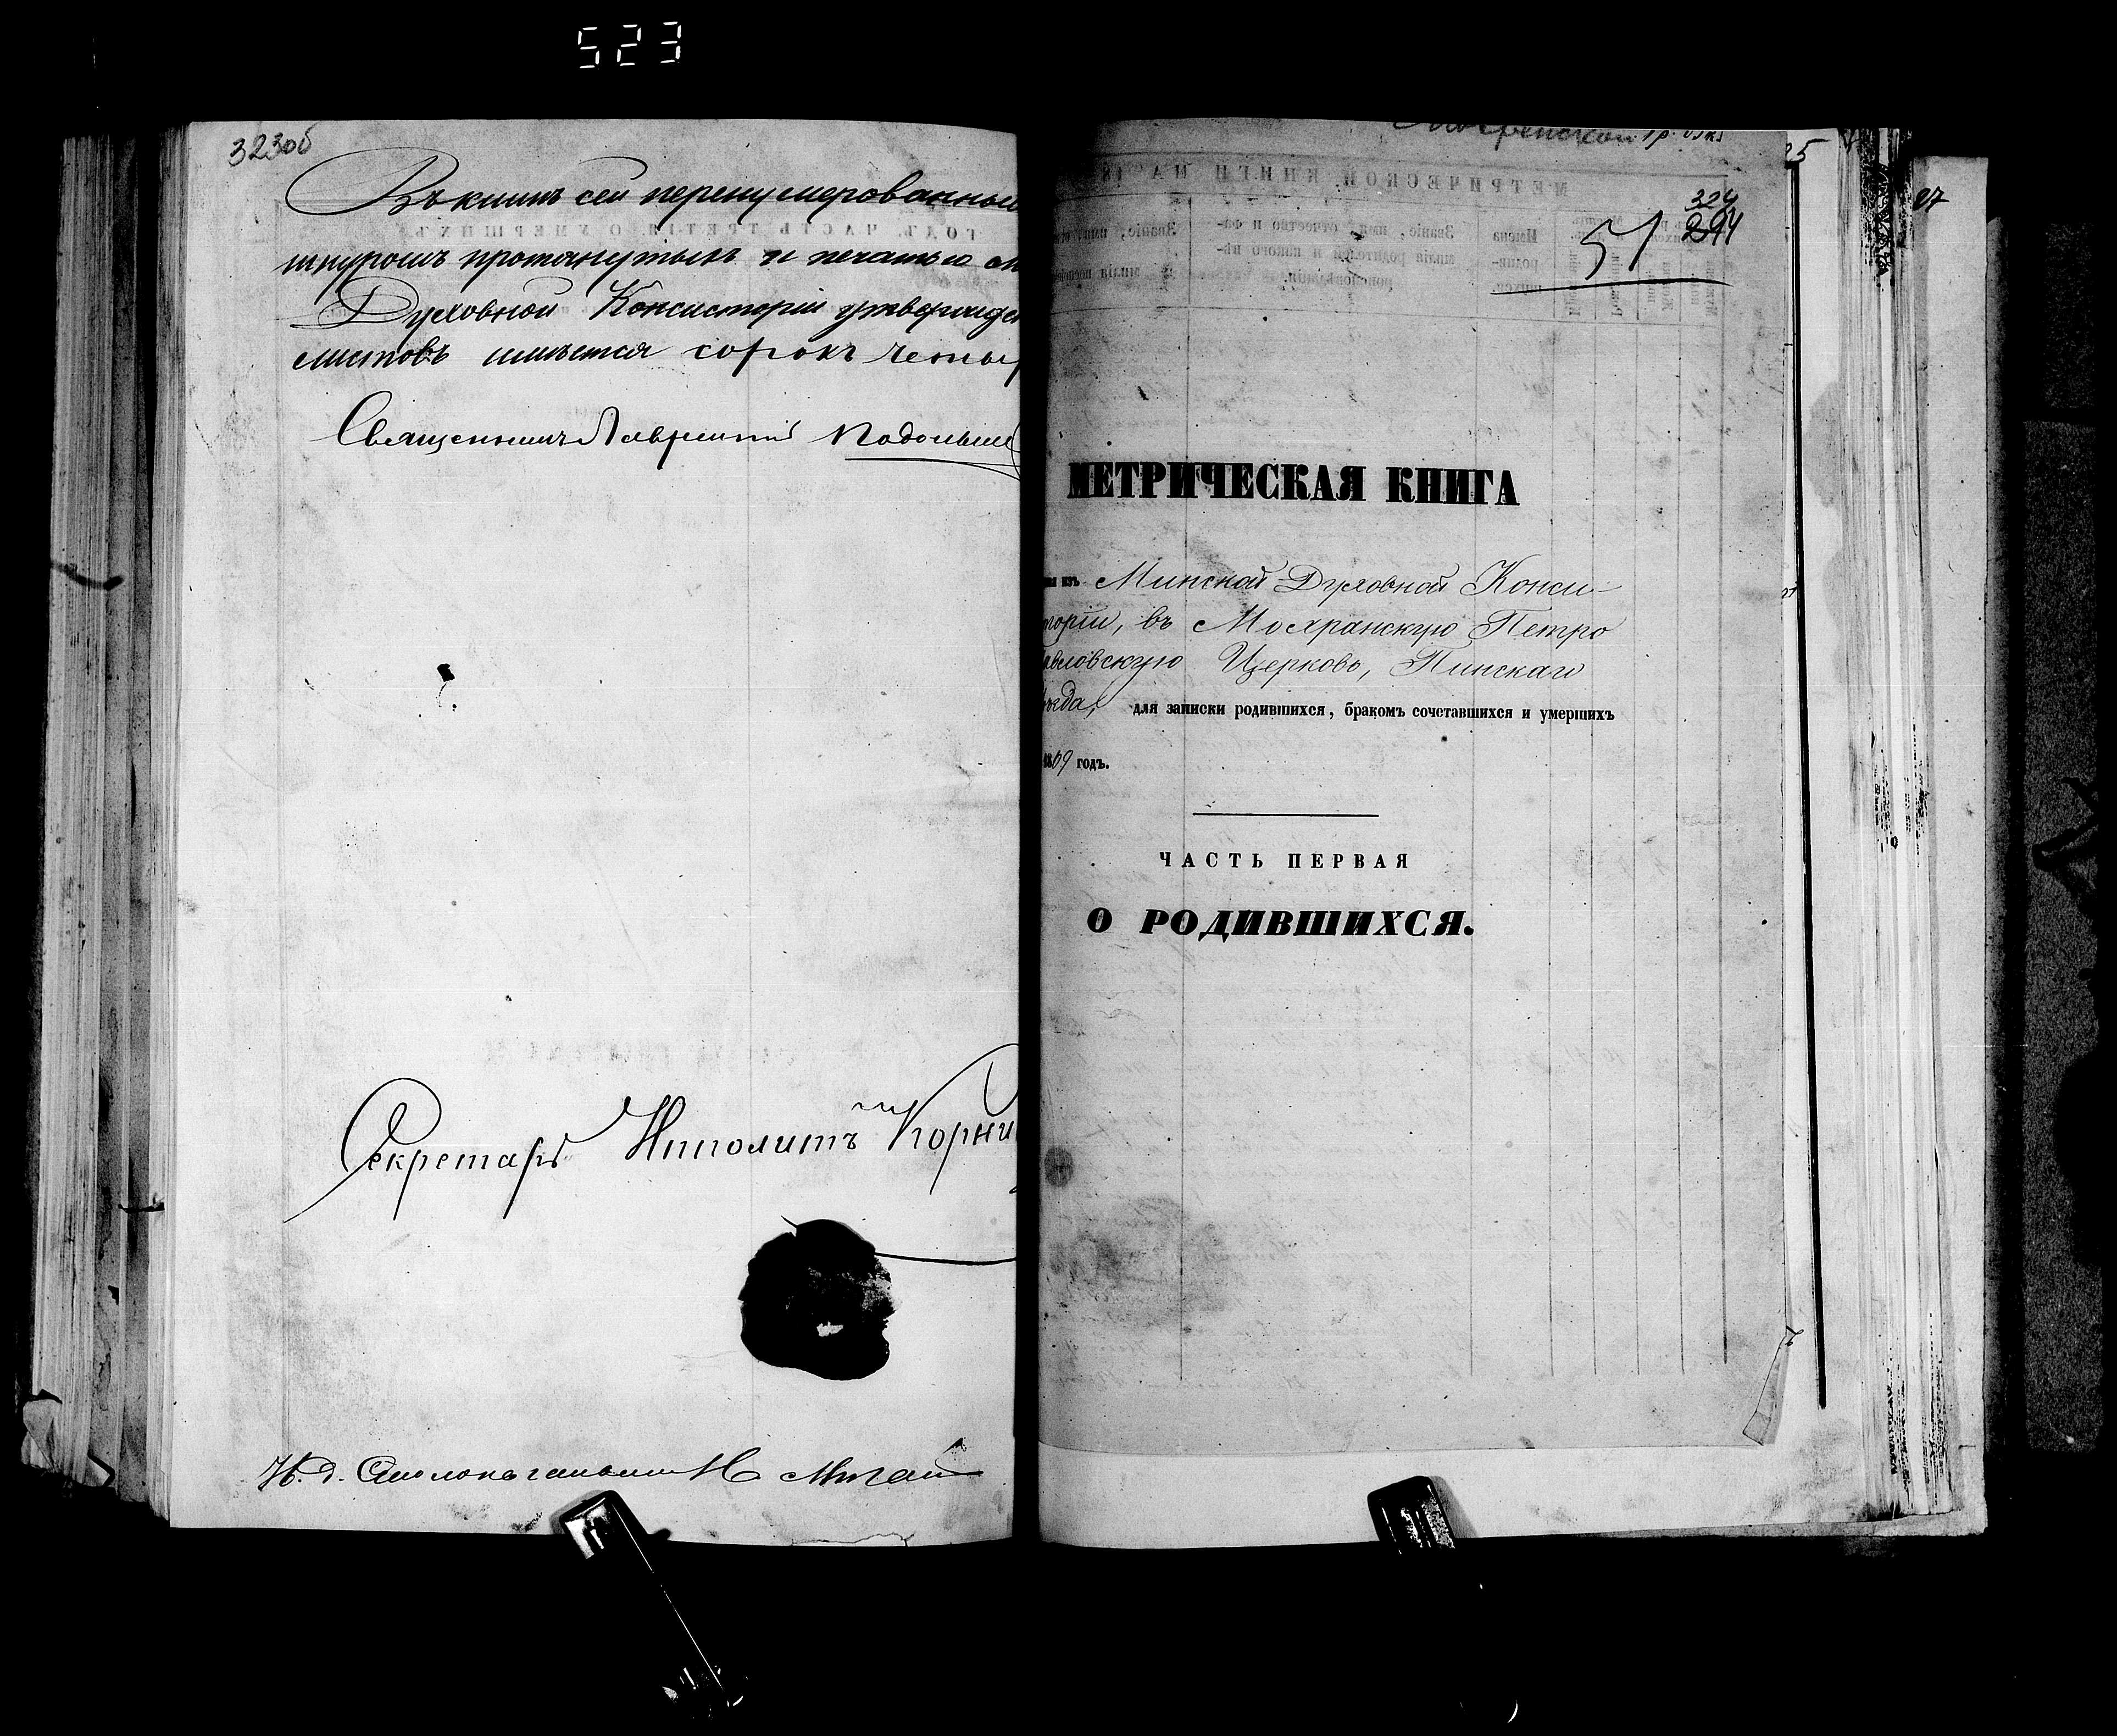 523
323об
Въ книгѣ сей перенумерованных
шнуромъ протянутыхъ и печатью
Духовной Консисторіи утвержде
листовъ имѣется сорокъ четыр
Священникъ Лаврентій
Секретарь Ипполитъ Корни
И. д. Столоначальника
324
294
51
25
27
МЕТРИЧЕСКАЯ КНИГА
изъ Минской Духовной Конси-
торіи, въ Мохранскую Петро
авловскую Церковь, Пинскаго
ѣзда, для записки родившихся, бракомъ сочетавшихся и умершихъ
1869 годъ.
ЧАСТЬ ПЕРВАЯ
О РОДИВШИХСЯ.